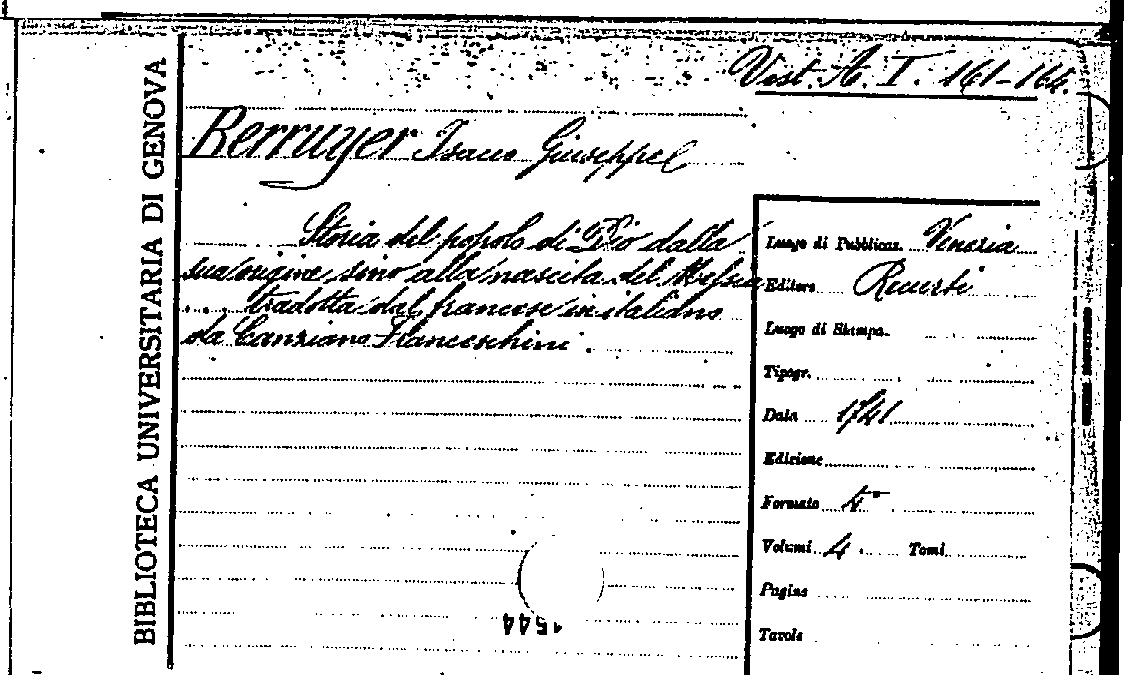 Vest. A. I. 161-164.
BIBLIOTECA UNIVERSITARIA DI GENOVA
Berruyer Isacco Giuseppe
Storia del popolo di Dio dalla
sua origine sino alla nascita del Messia
... tradotta dal francese in italiano
da Canziano Franceschini.
Luogo di Pubblicaz. Venezia
Editore Recurti
Luogo di Stampa.
Tipogr.
Data 1741
Edizione
Formato 4°
Volumi 4. Tomi
Pagine
Tavole
1544